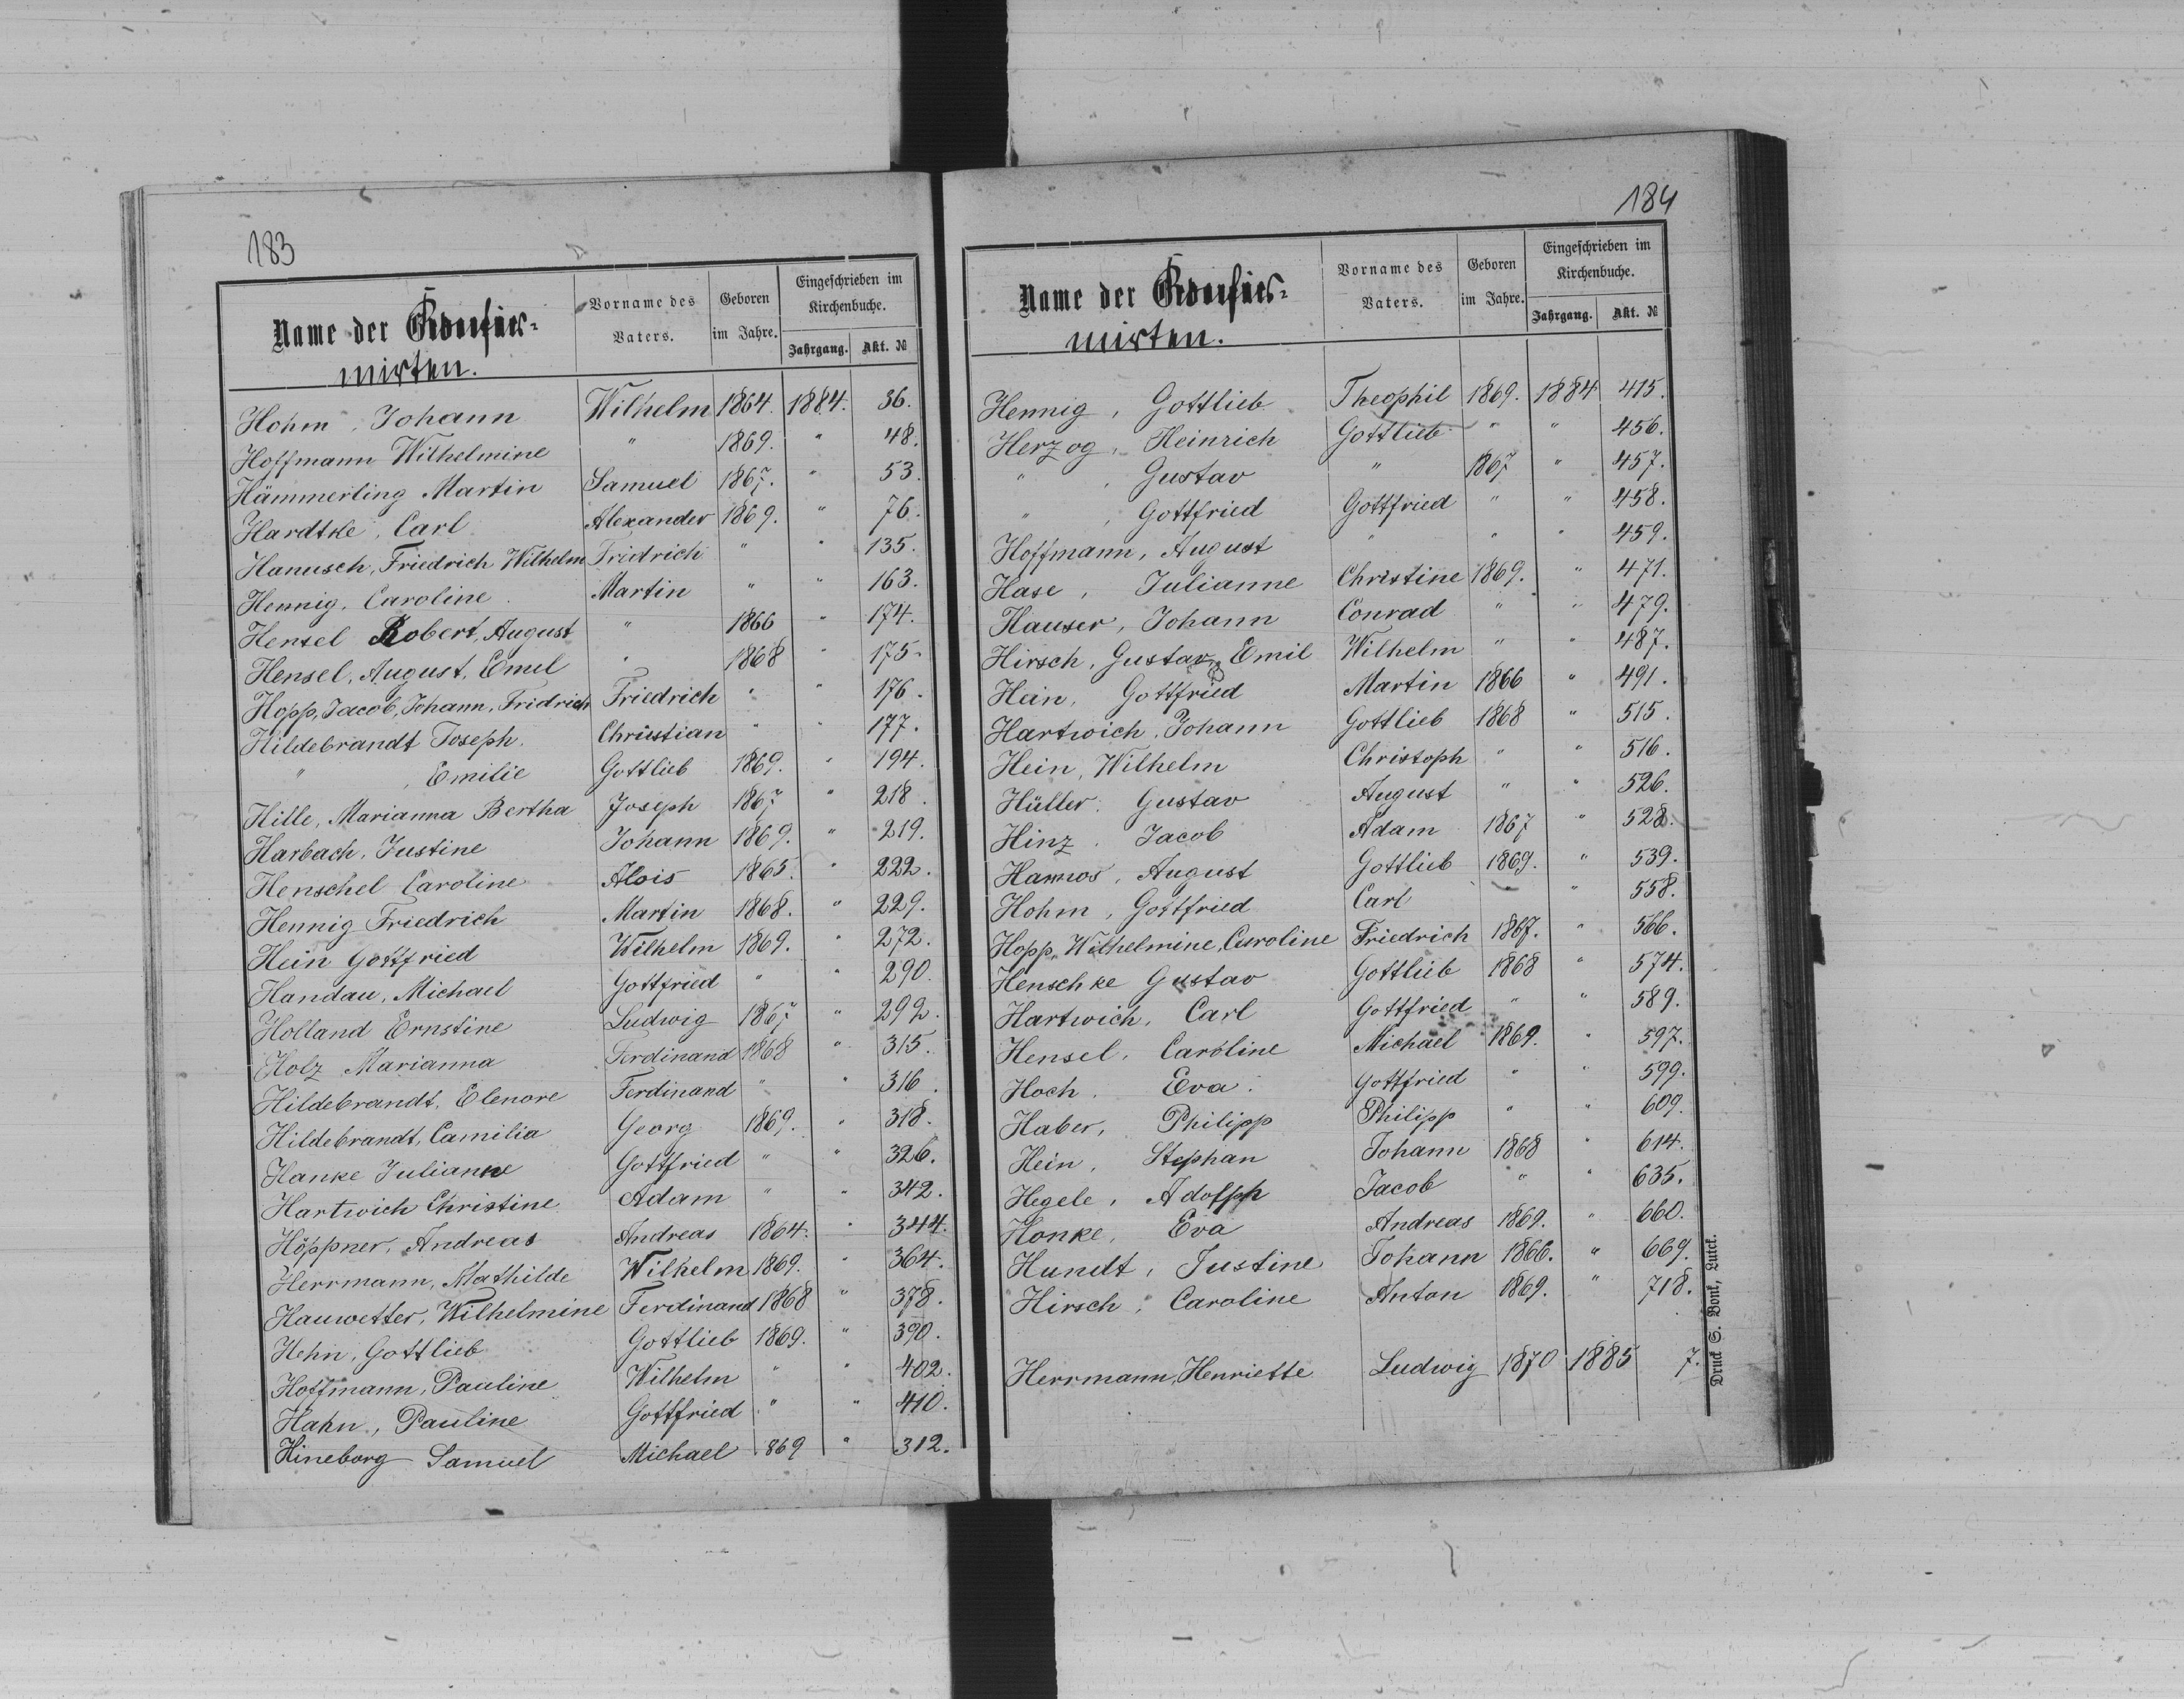 183
Name der Confir-
mirten.
Vorname des
Vaters.
Geboren
im Jahre.
Eingeschrieben im
Kirchenbuche.
Jahrgang. Akt. №
Hohm, Johann Wilhelm 1864. 1884. 36.
Hoffmann Wilhelmine " 1869. " 48.
Hämmerling Martin Samuel 1867. " 53.
Hardtke, Carl Alexander 1869. " 76.
Hanusch, Friedrich Wilhelm Fridrich " " 135.
Hennig, Caroline. Martin " " 163.
Hensel Robert, August " 1866 " 174.
Hensel, August, Emil " 1868 " 175.
Hopp, Jacob, Johann, Fridrich Friedrich " " 176.
Hildebrandt Joseph. Christian " " 177.
" , Emilie Gottlieb 1869. " 194.
Hille, Marianna Bertha Joseph 1867 " 218.
Harbach, Justine Johann 1869. " 219.
Henschel Caroline Alois 1865. " 222.
Hennig Friedrich Martin 1868. " 229.
Hein Gottfried Wilhelm 1869. " 272.
Handau, Michael Gottfried " " 290.
Holland Ernstine Ludwig 1867 " 292.
Holz Marianna Ferdinand 1868 " 315.
Hildebrandt, Elenore Ferdinand " " 316.
Hildebrandt, Camilia Georg 1869. " 318.
Hanke Julianne Gottfried " " 326.
Hartwich Christine Adam " " 342.
Höppner, Andreas Andreas 1864. " 344.
Herrmann, Mathilde Wilhelm 1869. " 364.
Hauwetter, Wilhelmine Ferdinand 1868 " 378.
Hehn, Gottlieb Gottlieb 1869. " 390.
Hoffmann, Pauline Wilhelm " " 402.
Hahn, Pauline Gottfried " " 410.
Hineborg Samuel Michael 1869 " 312.
184
Name der Confir-
mirten.
Vorname des
Vaters.
Geboren
im Jahre.
Eingeschrieben im
Kirchenbuche.
Jahrgang. Akt. №
Hennig, Gottlieb Theophil 1869. 1884 415.
Herzog, Heinrich Gottlieb " " 456.
" , Gustav " 1867 " 457.
" , Gottfried Gottfried " " 458.
Hoffmann, August " " " 459.
Hase, Julianne Christine 1869. " 471.
Hauser, Johann Conrad " " 479.
Hirsch, Gustav, Emil Wilhelm " " 487.
Hein, Gottfried Martin 1866 " 491.
Hartwich, Johann Gottlieb 1868 " 515.
Hein, Wilhelm Christoph " " 516.
Hüller, Gustav August " " 526.
Hinz, Jacob Adam 1867 " 528.
August Gottlieb 1869. " 539.
Hohm, Gottfried Carl " " 558.
Hopp, Wilhelmine, Caroline Friedrich 1867. " 566.
Henschke Gustav Gottlieb 1868 " 574.
Hartwich, Carl Gottfried " " 589.
Hensel, Caroline Michael 1869. " 597.
Hoch, Eva. Gottfried " " 599.
Haber, Philipp Philipp " " 609.
Hein, Stephan Johann 1868 " 614.
Hegele, Adolph Jacob " " 635.
Honke, Eva Andreas 1869. " 660.
Hundt, Justine Johann 1866. " 669.
Hirsch, Caroline Anton 1869. " 718.
Herrmann, Henriette Ludwig 1870 1885 7.
Druck S. Bonk, Lutck.